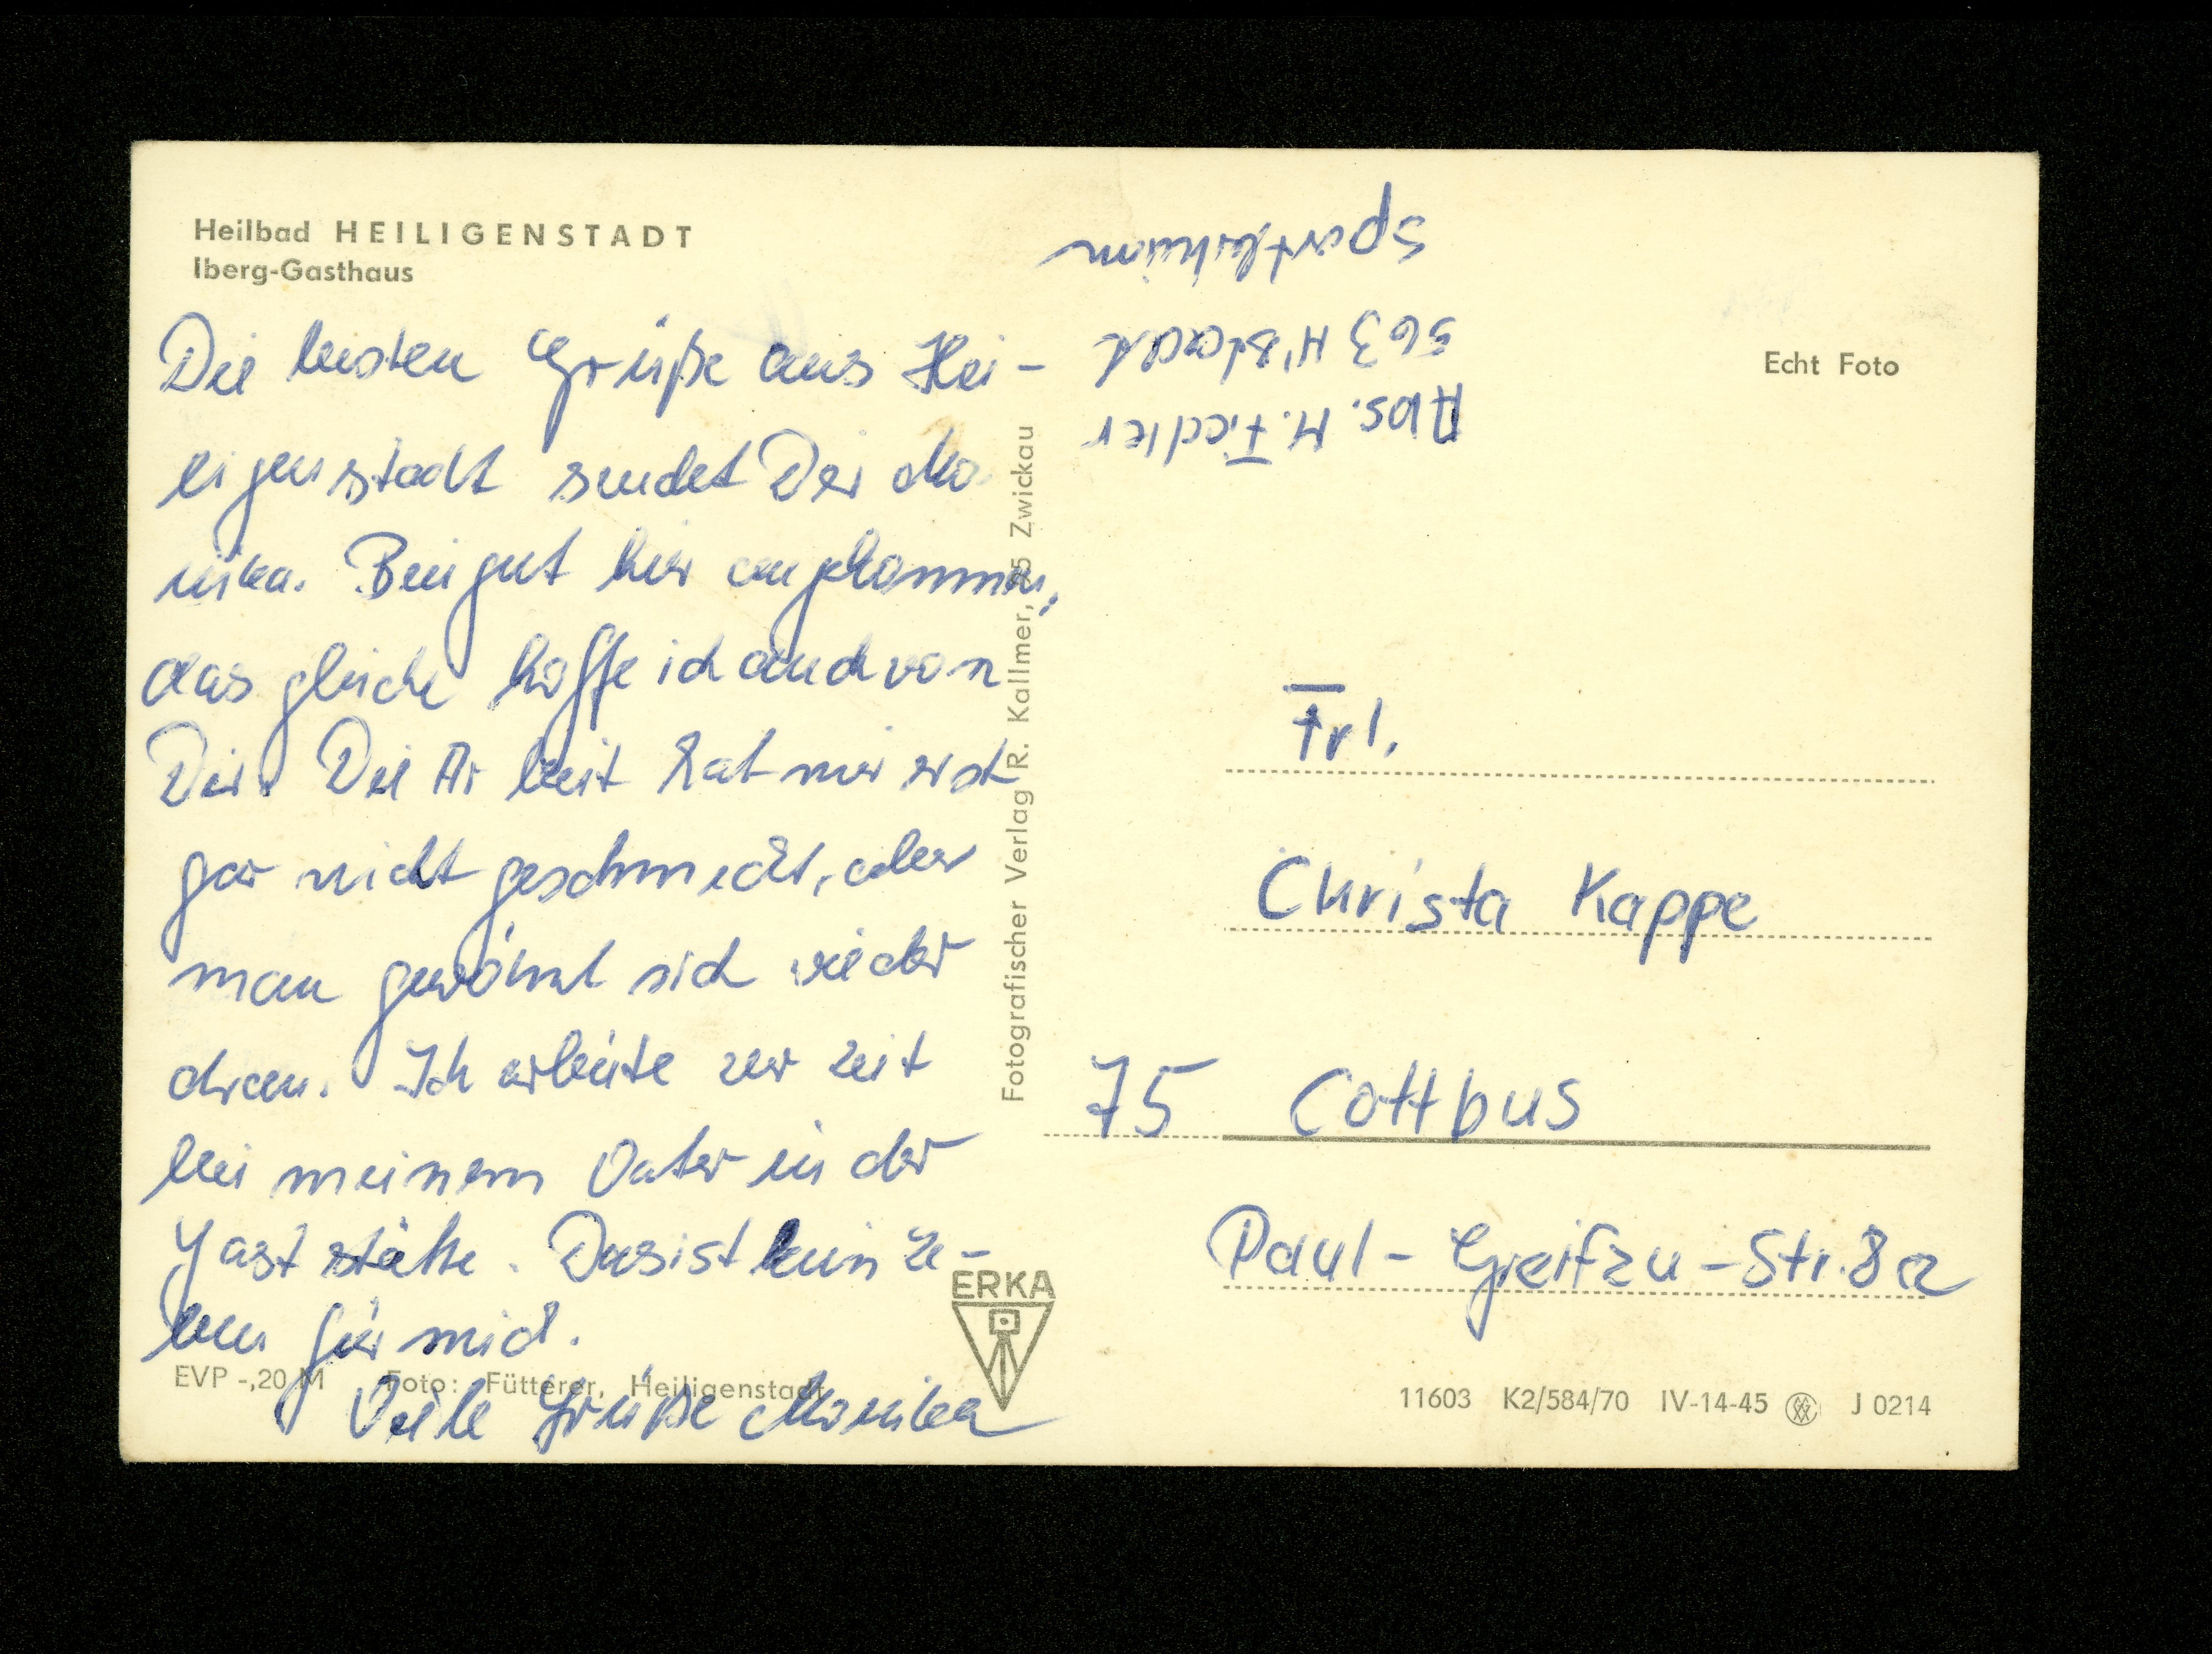 Heilbad HEILIGENSTADT
Iberg-Gasthaus
Die besten Grüße aus Hei-
ligenstadt sendet Dir Mo-
nika. Bin gut hier angekommen,
das gleiche hoffe ich auch von
Dir. Die Arbeit hat mir erst
gar nicht geschmeckt, aber
man gewöhnt sich wieder
dran. Ich arbeite zur Zeit
bei meinem Vater in der
Gaststätte. Das ist kein Le-
ben für mich.
Viele Grüße Monika
EVP -,20 M Foto: Fütterer, Heiligenstadt
Fotografischer Verlag R. Kallmer, 95 Zwickau
ERKA
Abs. M. Fiedler
563 H'Stadt
Echt Foto
Frl.
Christa Kappe
75 Cottbus
Paul-Greifzu-Str. 8a
11603 K2/584/70 IV-14-45 J 0214